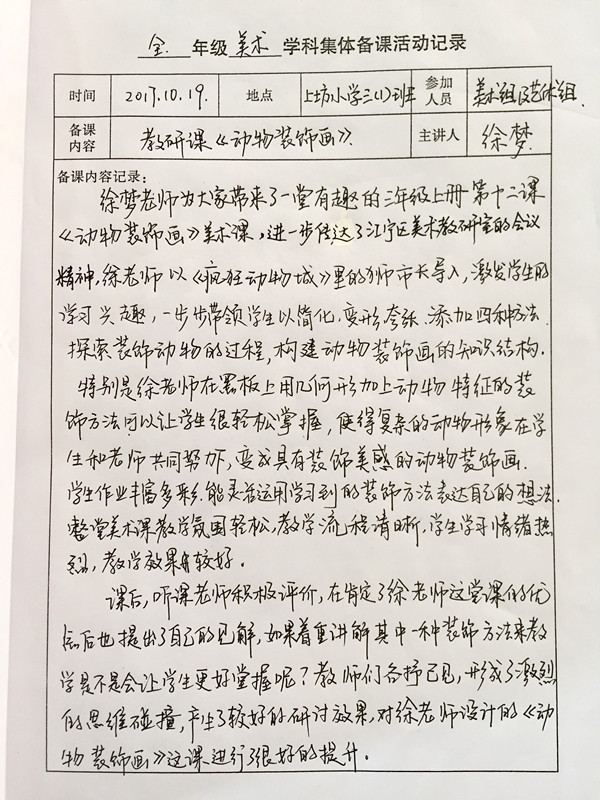 全 年级 美术 学科集体备课活动记录
时间 2017.10.19. 地点 上坊小学三(1)班 参加人员 美术组及艺术组.
备课内容 教研课《动物装饰画》. 主讲人 徐梦.
备课内容记录:
徐梦老师为大家带来了一堂有趣的三年级上册第十二课
《动物装饰画》美术课,进一步传达了江宁区美术教研室的会议
精神,徐老师以《疯狂动物城》里的狮市长导入,激发学生的
学习兴趣,一步步带领学生以简化.变形.夸张.添加四种方法
探索装饰动物的过程,构建动物装饰画的知识结构.
特别是徐老师在黑板上用几何形加上动物特征的装
饰方法可以让学生很轻松掌握,使得复杂的动物形象在学
生和老师共同努力下,变成具有装饰美感的动物装饰画.
学生作业丰富多彩.能灵活运用学习到的装饰方法表达自己的想法.
整堂美术课教学氛围轻松,教学流程清晰,学生学习情绪热
烈,教学效果较好.
课后,听课老师积极评价,在肯定了徐老师这堂课的优
后也提出了自己的见解,如果着重讲解其中一种装饰方法来教
学是不是会让学生更好掌握呢?教师们各抒己见,形成了激烈
的思维碰撞,产生了较好的研讨效果,对徐老师设计的《动
物装饰画》这课进行了很好的提升.